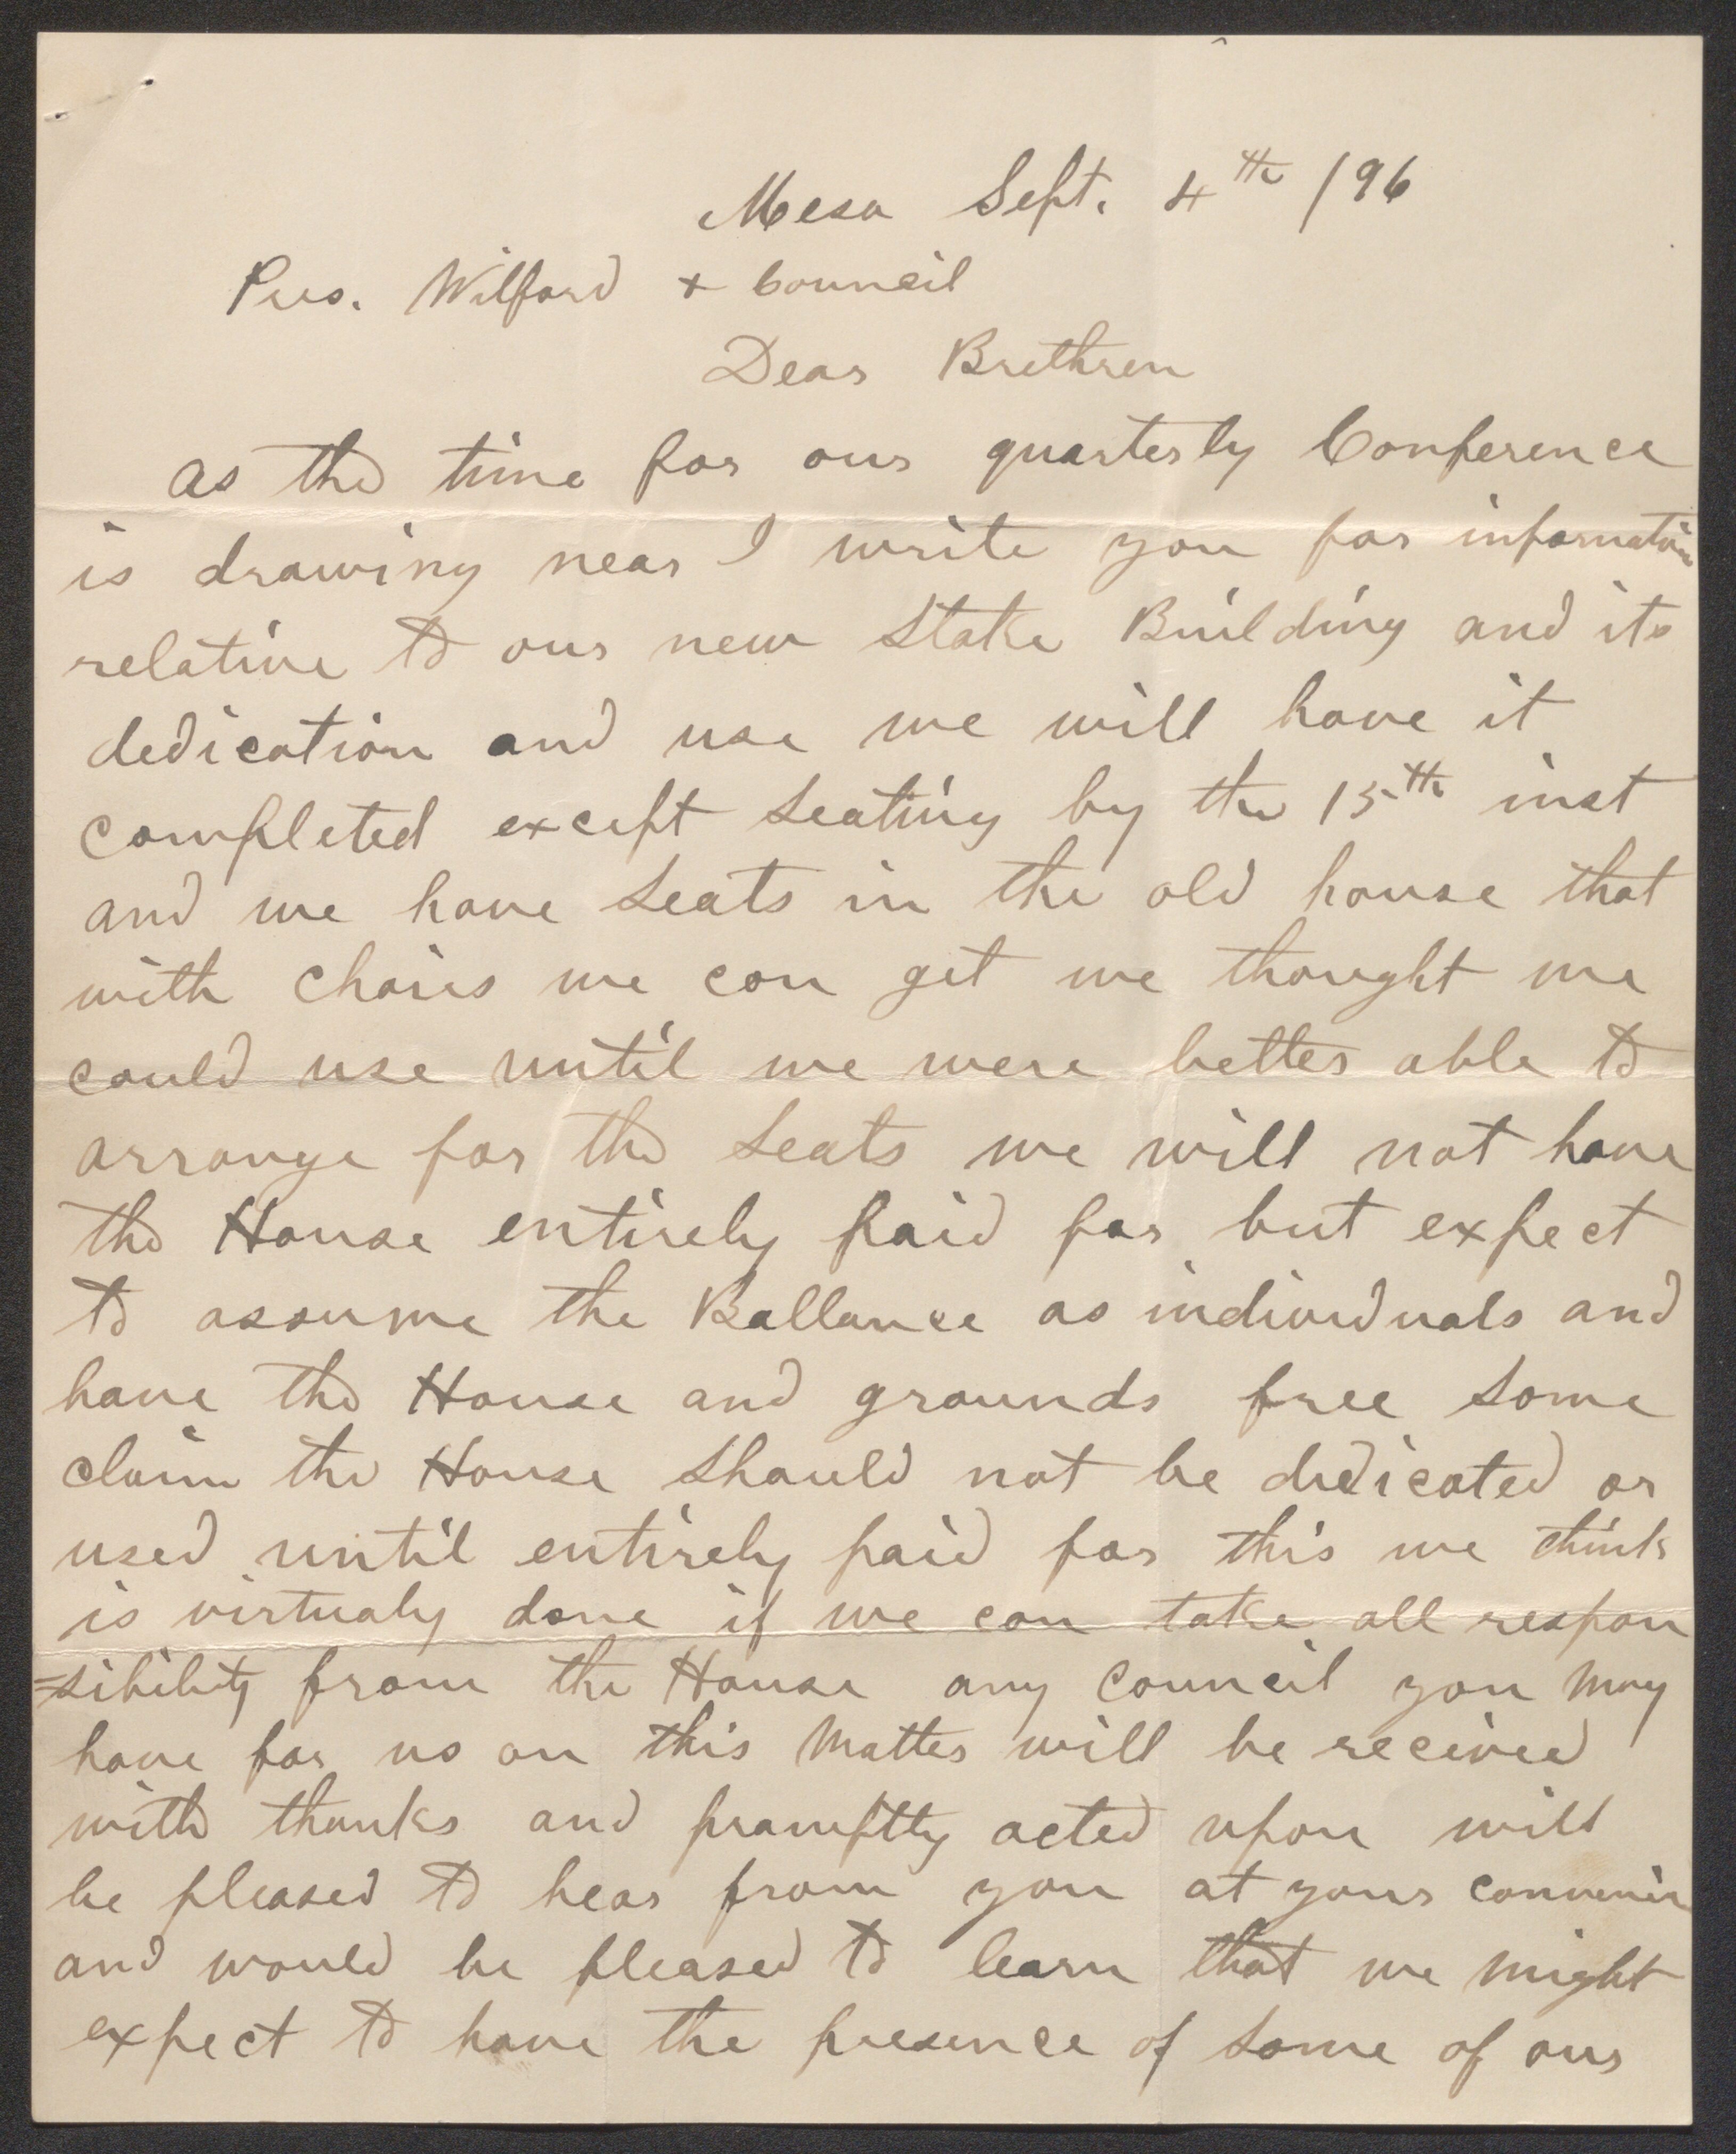 Mesa Sept. 4th /96
Pres. Wilford + Council
Dear Brethren
as the time for our quarterly Conference
is drawing near I write you for information
relative to our new Stake Building and its
dedication and use we will have it
completed except seating by the 15th inst
and we have seats in the old house that
with chairs we can get we thought we
could use until we were better able to
arrange for the seats we will not have
the House entirely paid for but expect
to assume the Ballance as individuals and
have the House and grounds free some
claim the House should not be dedicated or
used until entirely paid for this we think
is virtualy done if we can take all respon
=sibility from the House any council you may
have for us on this matter will be recived
with thanks and promptly acted upon will
be pleased to hear from you at your convenien
and would be pleased to learn that we might
expect to have the presence of some of our